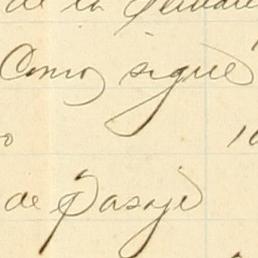 de la
Como sigue
10
de Pasaje